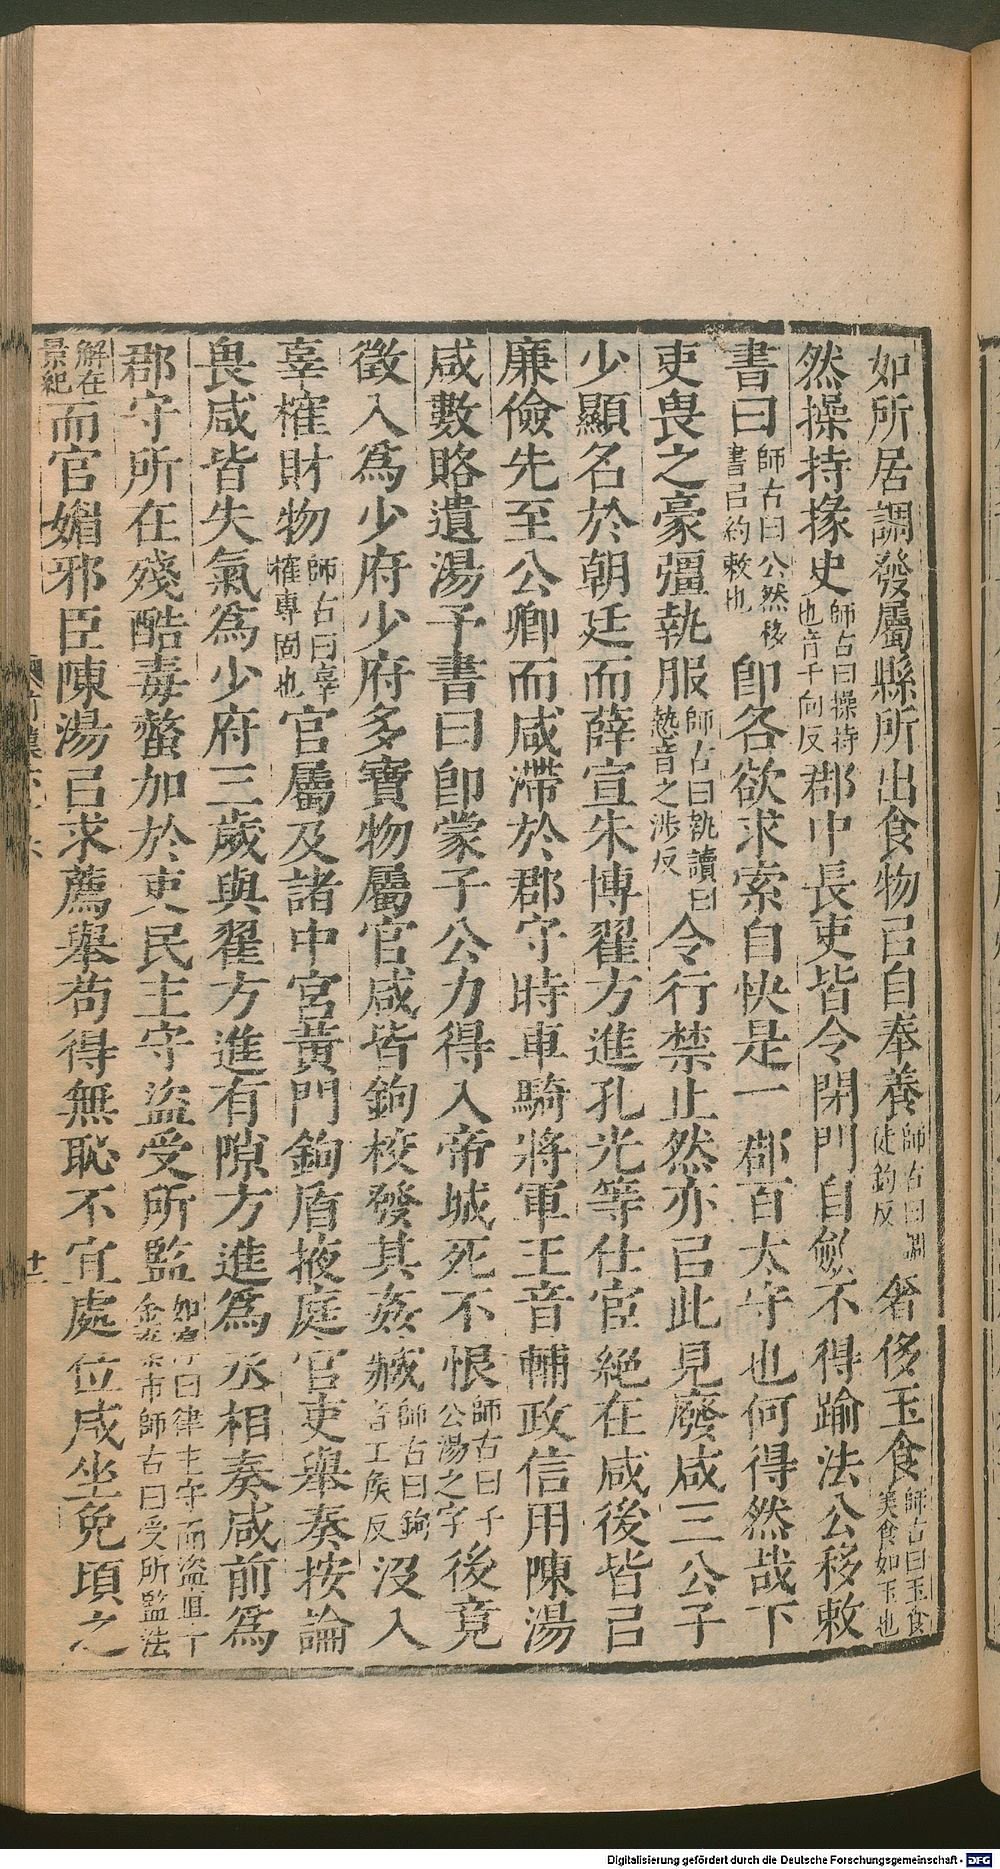 如所居調發屬縣所出食物㠯自奉養師古曰調徒釣反奢侈玉食師古曰玉食美食如玉也
然操持掾史師古曰操持也音千向反郡中長吏皆令閉門自斂不得踰法公移敕
書曰師古曰公然移書㠯約敕也卽各欲求索自快是一郡百太守也何得然哉下
吏畏之豪彊執服師古曰執讀曰慹音之涉反令行禁止然亦㠯此見廢咸三公子
少顯名於朝廷而薛宣朱博翟方進孔光等仕宦絕在咸後皆㠯
廉儉先至公卿而咸滯於郡守時車騎將軍王音輔政信用陳湯
咸數賂遺湯予書曰卽蒙子公力得入帝城死不恨師古曰子公湯之字後竟
徵入爲少府少府多寶物屬官咸皆鉤校發其姦臧師古曰鉤音工侯反沒入
辜榷財物師古曰辜榷專固也官屬及諸中宮黃門鉤盾掖庭官吏舉奏按論
畏咸皆失氣爲少府三歲與翟方進有隙方進爲丞相奏咸前爲
郡守所在殘酷毒螫加於吏民主守盜受所監如淳曰律主守而盜直十金棄市師古曰受所監法
解在景紀而官媚邪臣陳湯㠯求薦舉苟得無恥不宜處位咸坐免頃之
廿二
Digitalisierung gefördert durch die Deutsche Forschungsgemeinschaft - DFG